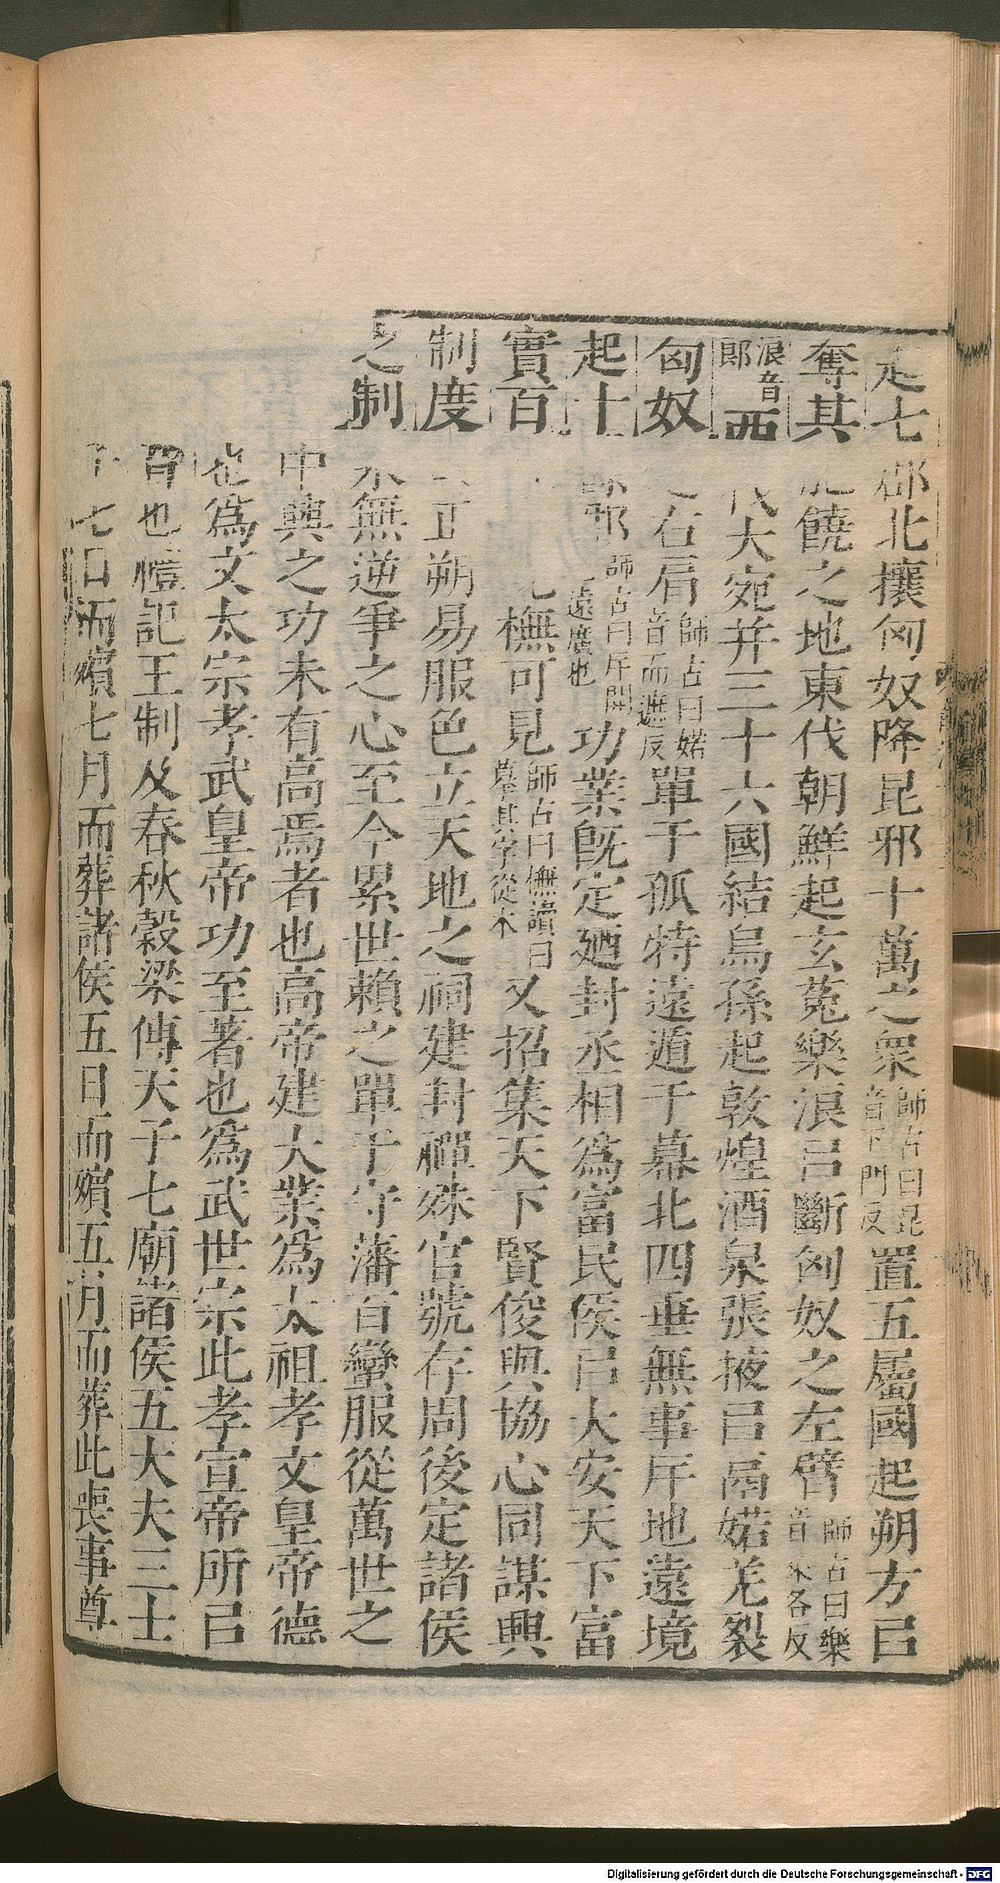 起七郡北攘匈奴降昆邪十萬之衆師古曰昆音下門反置五屬國起朔方㠯
奪其肥饒之地東伐朝鮮起玄菟樂浪㠯斷匈奴之左臂師古曰樂音來各反
浪音郎西伐大宛并三十六國結烏孫起敦煌酒泉張掖㠯鬲婼羌裂
匈奴之右肩師古曰婼音而遮反單于孤特遠遁于幕北四垂無事斥地遠境
起十餘郡師古曰斥開也遠廣也功業旣定廼封丞相爲富民侯㠯大安天下富
實百橅可見師古曰橅讀曰摹其字從木又招集天下賢俊與協心同謀興
制度正朔易服色立天地之祠建封禪殊官號存周後定諸侯
之制永無逆爭之心至今累世賴之單于守藩百蠻服從萬世之
中興之功未有高焉者也高帝建大業爲太祖孝文皇帝德
也爲文太宗孝武皇帝功至著也爲武世宗此孝宣帝所㠯
也禮記王制及春秋穀梁傳天子七廟諸侯五大夫三士
七日而殯七月而葬諸侯五日而殯五月而葬此喪事尊
Digitalisierung gefördert durch die Deutsche Forschungsgemeinschaft - DFG